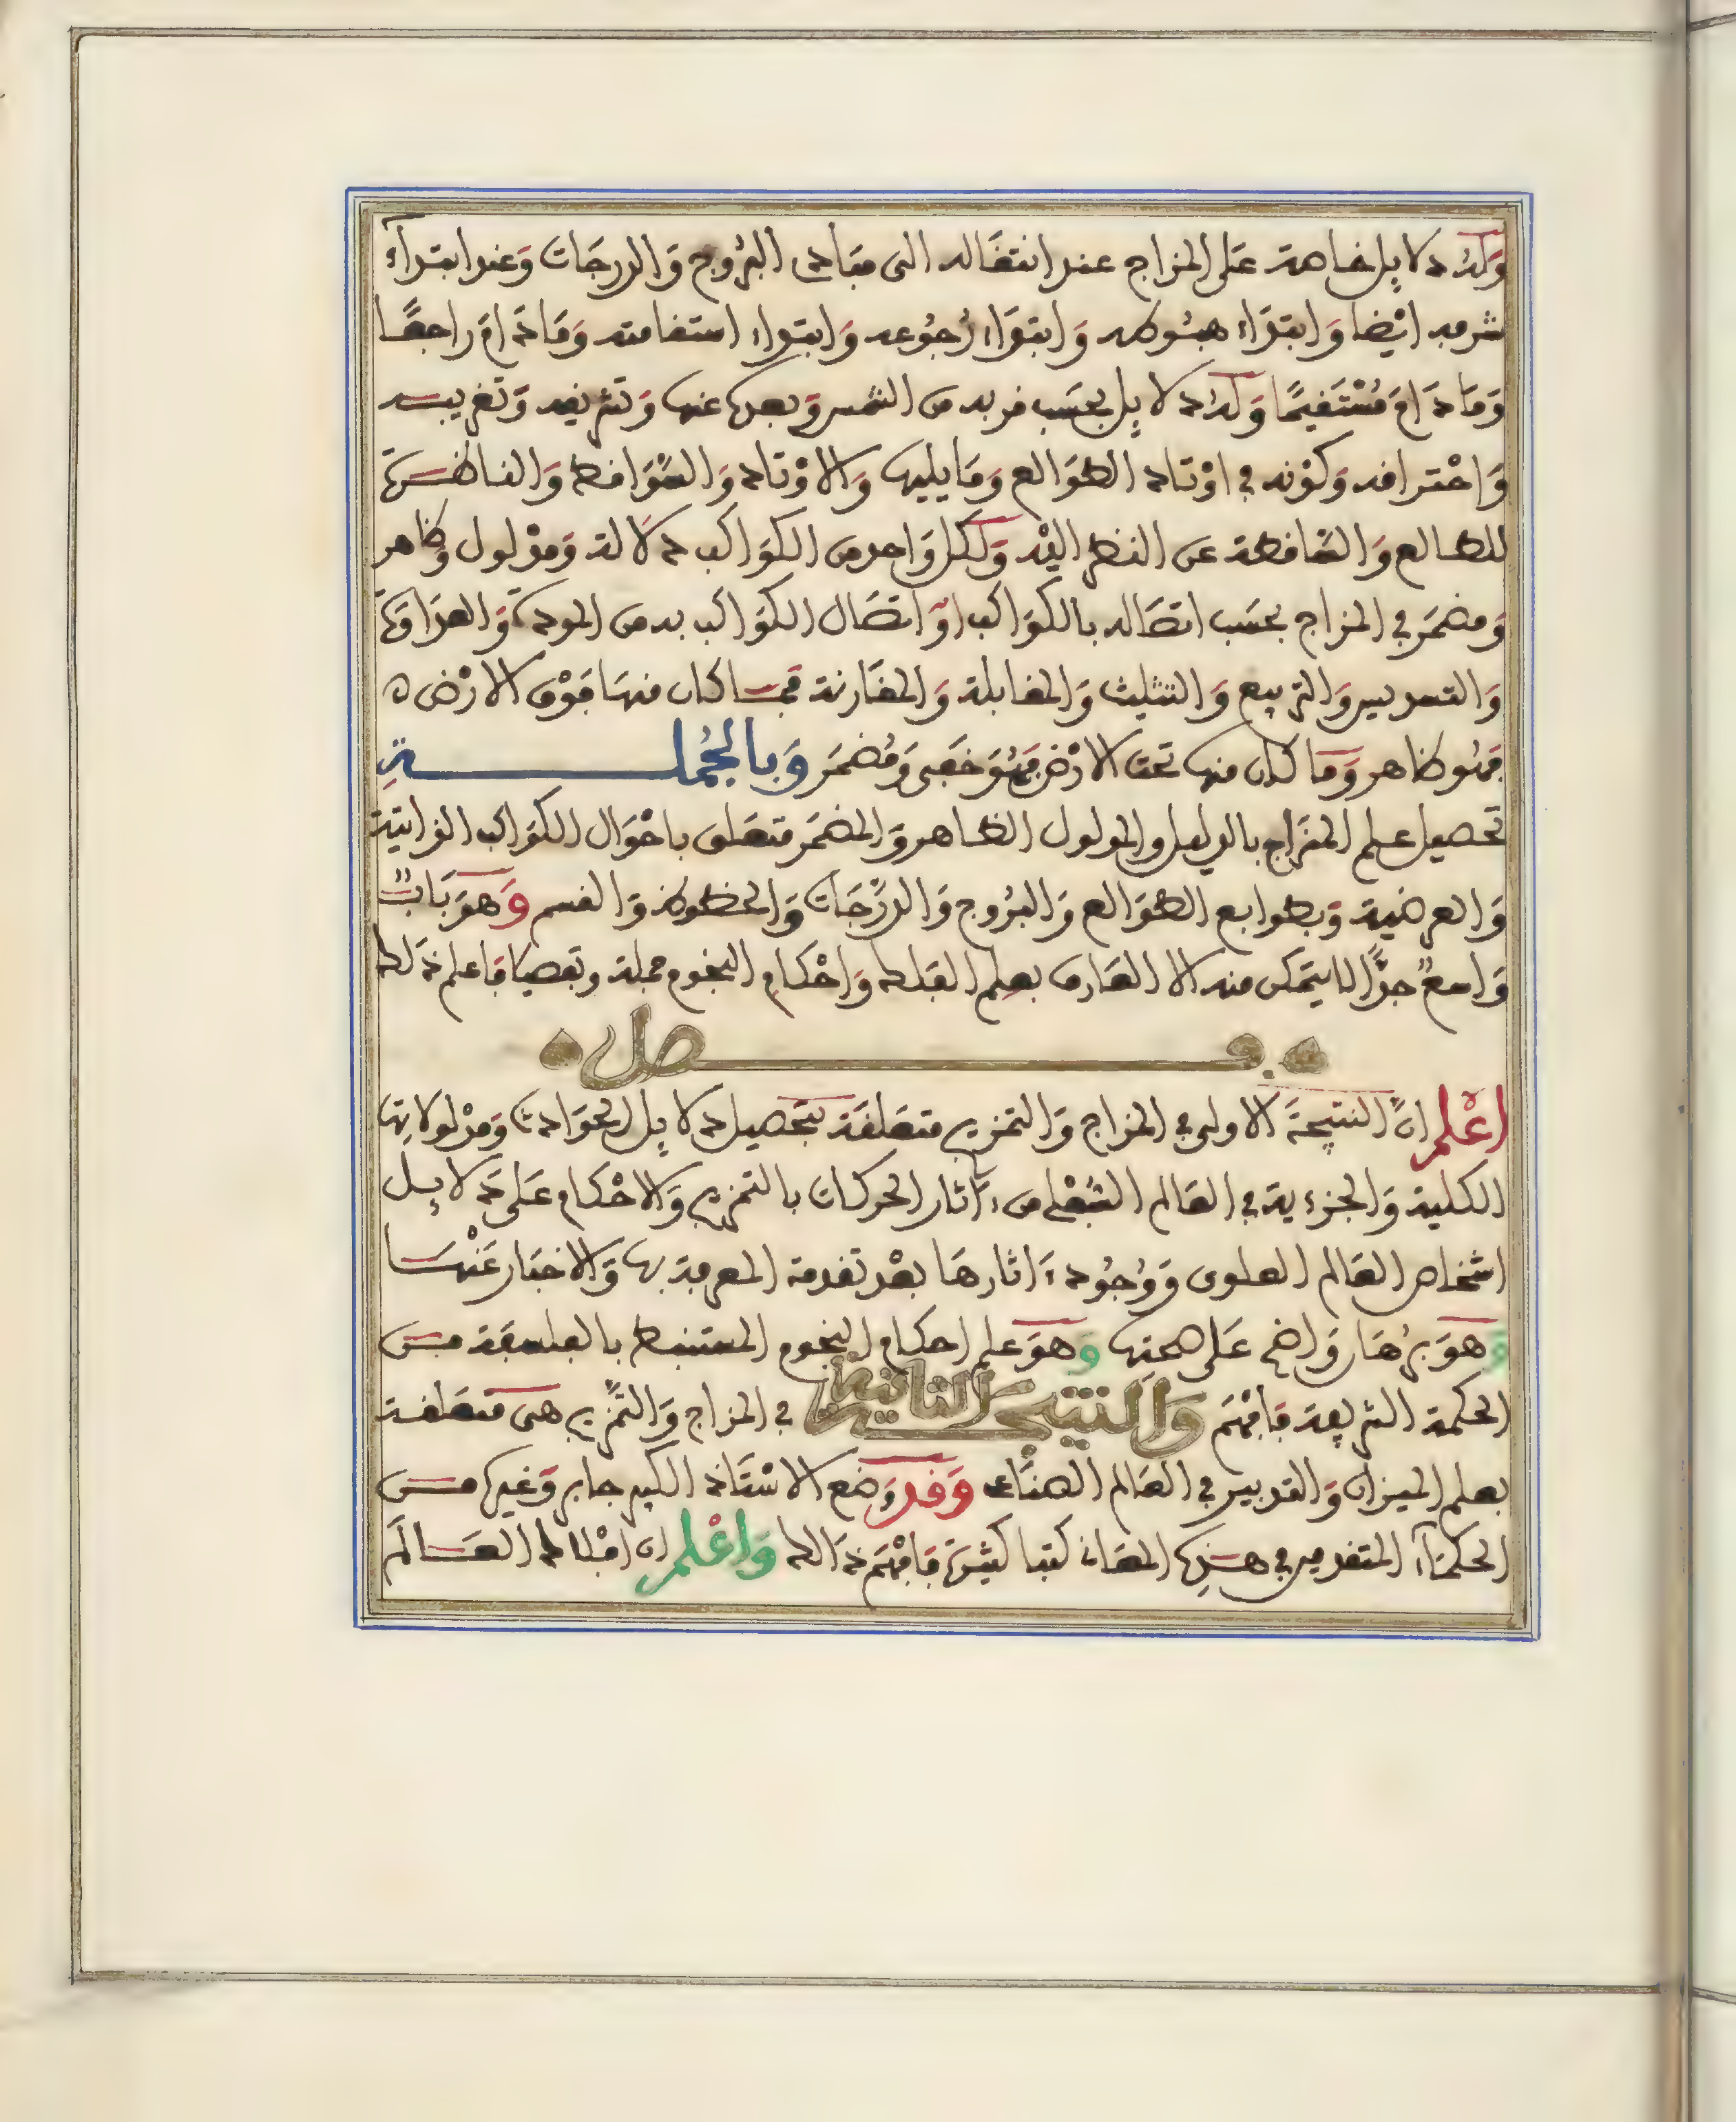 وَلَهُ دلايل خاصة عَلى المزاج عند انتقَاله الى مبَادى البُرُوج وَالدرجَات وَعند ابتدآء
شرفه ايْضا وَابتدَاء هبُوطه وَابتدَاء رُجُوعه وَابتداء استقامته وَمَا دَامَ راجعًا
وَمَا دَامَ مُسْتَقيمًا وَلهُ دلايل بحسَب قربه من الشمس وَبعده عنها وَتشريفه وَتغريبه
وَاحْتراقه وَكَوْنه في اوْتاد الطوَالع وَمَا يليها وَالاوْتاد وَالسّوَاقط وَالناظرة
للطالع وَالسَّاقطة عن النظر اليْه وَلكل وَاحد من الكوَاكب دلَالة وَمدْلول وَظاهر
وَمضمَر في المزاج بحسَب اتصَاله بالكوَاكب اوَ اتصَال الكوَاكب به من المودة وَالعدَاوَة
وَالتسديس وَالتربيع وَالتثليث وَالمقابلة وَالمقَارنة فما كان منهَا فوْق الارْض ه
فهُو ظاهر وَمَا كان منها تحت الارْض فهُوَ خَفى وَمُضمَر وَبالجُملــة
تحصيل علم المزَاج بالدليل والمدلول الظاهر وَالمضمَر متعَلق باحْوَال الكوَاكب الذاتية
وَالعرضية وَبطوابع الطوَالع وَالبرُوج وَالدرّجَات وَالحظوظ وَالقسم وَهوَ بَابٌ
وَاسعٌ جدًّا لا يتمكن منه الا العَارف بعلم الفلك وَاحْكَام النجوم جملة وتفصيلا فاعلم ذَلك
فــصل
اعْلم انّ النتيجَة الاولى في المزاج وَالتمزيج متعَلقَة بتحصيل دلايل الحوَادث وَمدْلولاتها
الكلية وَالجزءية في العَالم السُّفْلى من ءاثار الحركات بالتمزيج وَالاحْكام عَلى دَلايل
اشخاص العَالم العلوى وَوُجُود ءاثارهَا بعْد تقدمة المعرفة بها وَالاخبَار عَنْهَا
وَهوَ برُهَان وَاضح عَلى صحتها وَهوَ علم احكام النجوم المستنبط بالفلسفة من
الحكمة الشريفة فافهَم وَالنتيجة الثانية في المزاج وَالتمّزيج هى متعَلقة
بعلم الميزان وَالتدبير في العَالم الصنَاعى وَقد وَضع الاسْتَاذ الكبير جابر وَغيره من
الحكمَآء المتقدمين في هذه المعَان كتبا كثيرَة فافْهَم ذَالك وَاعْلم ان افْلاك العَالَم